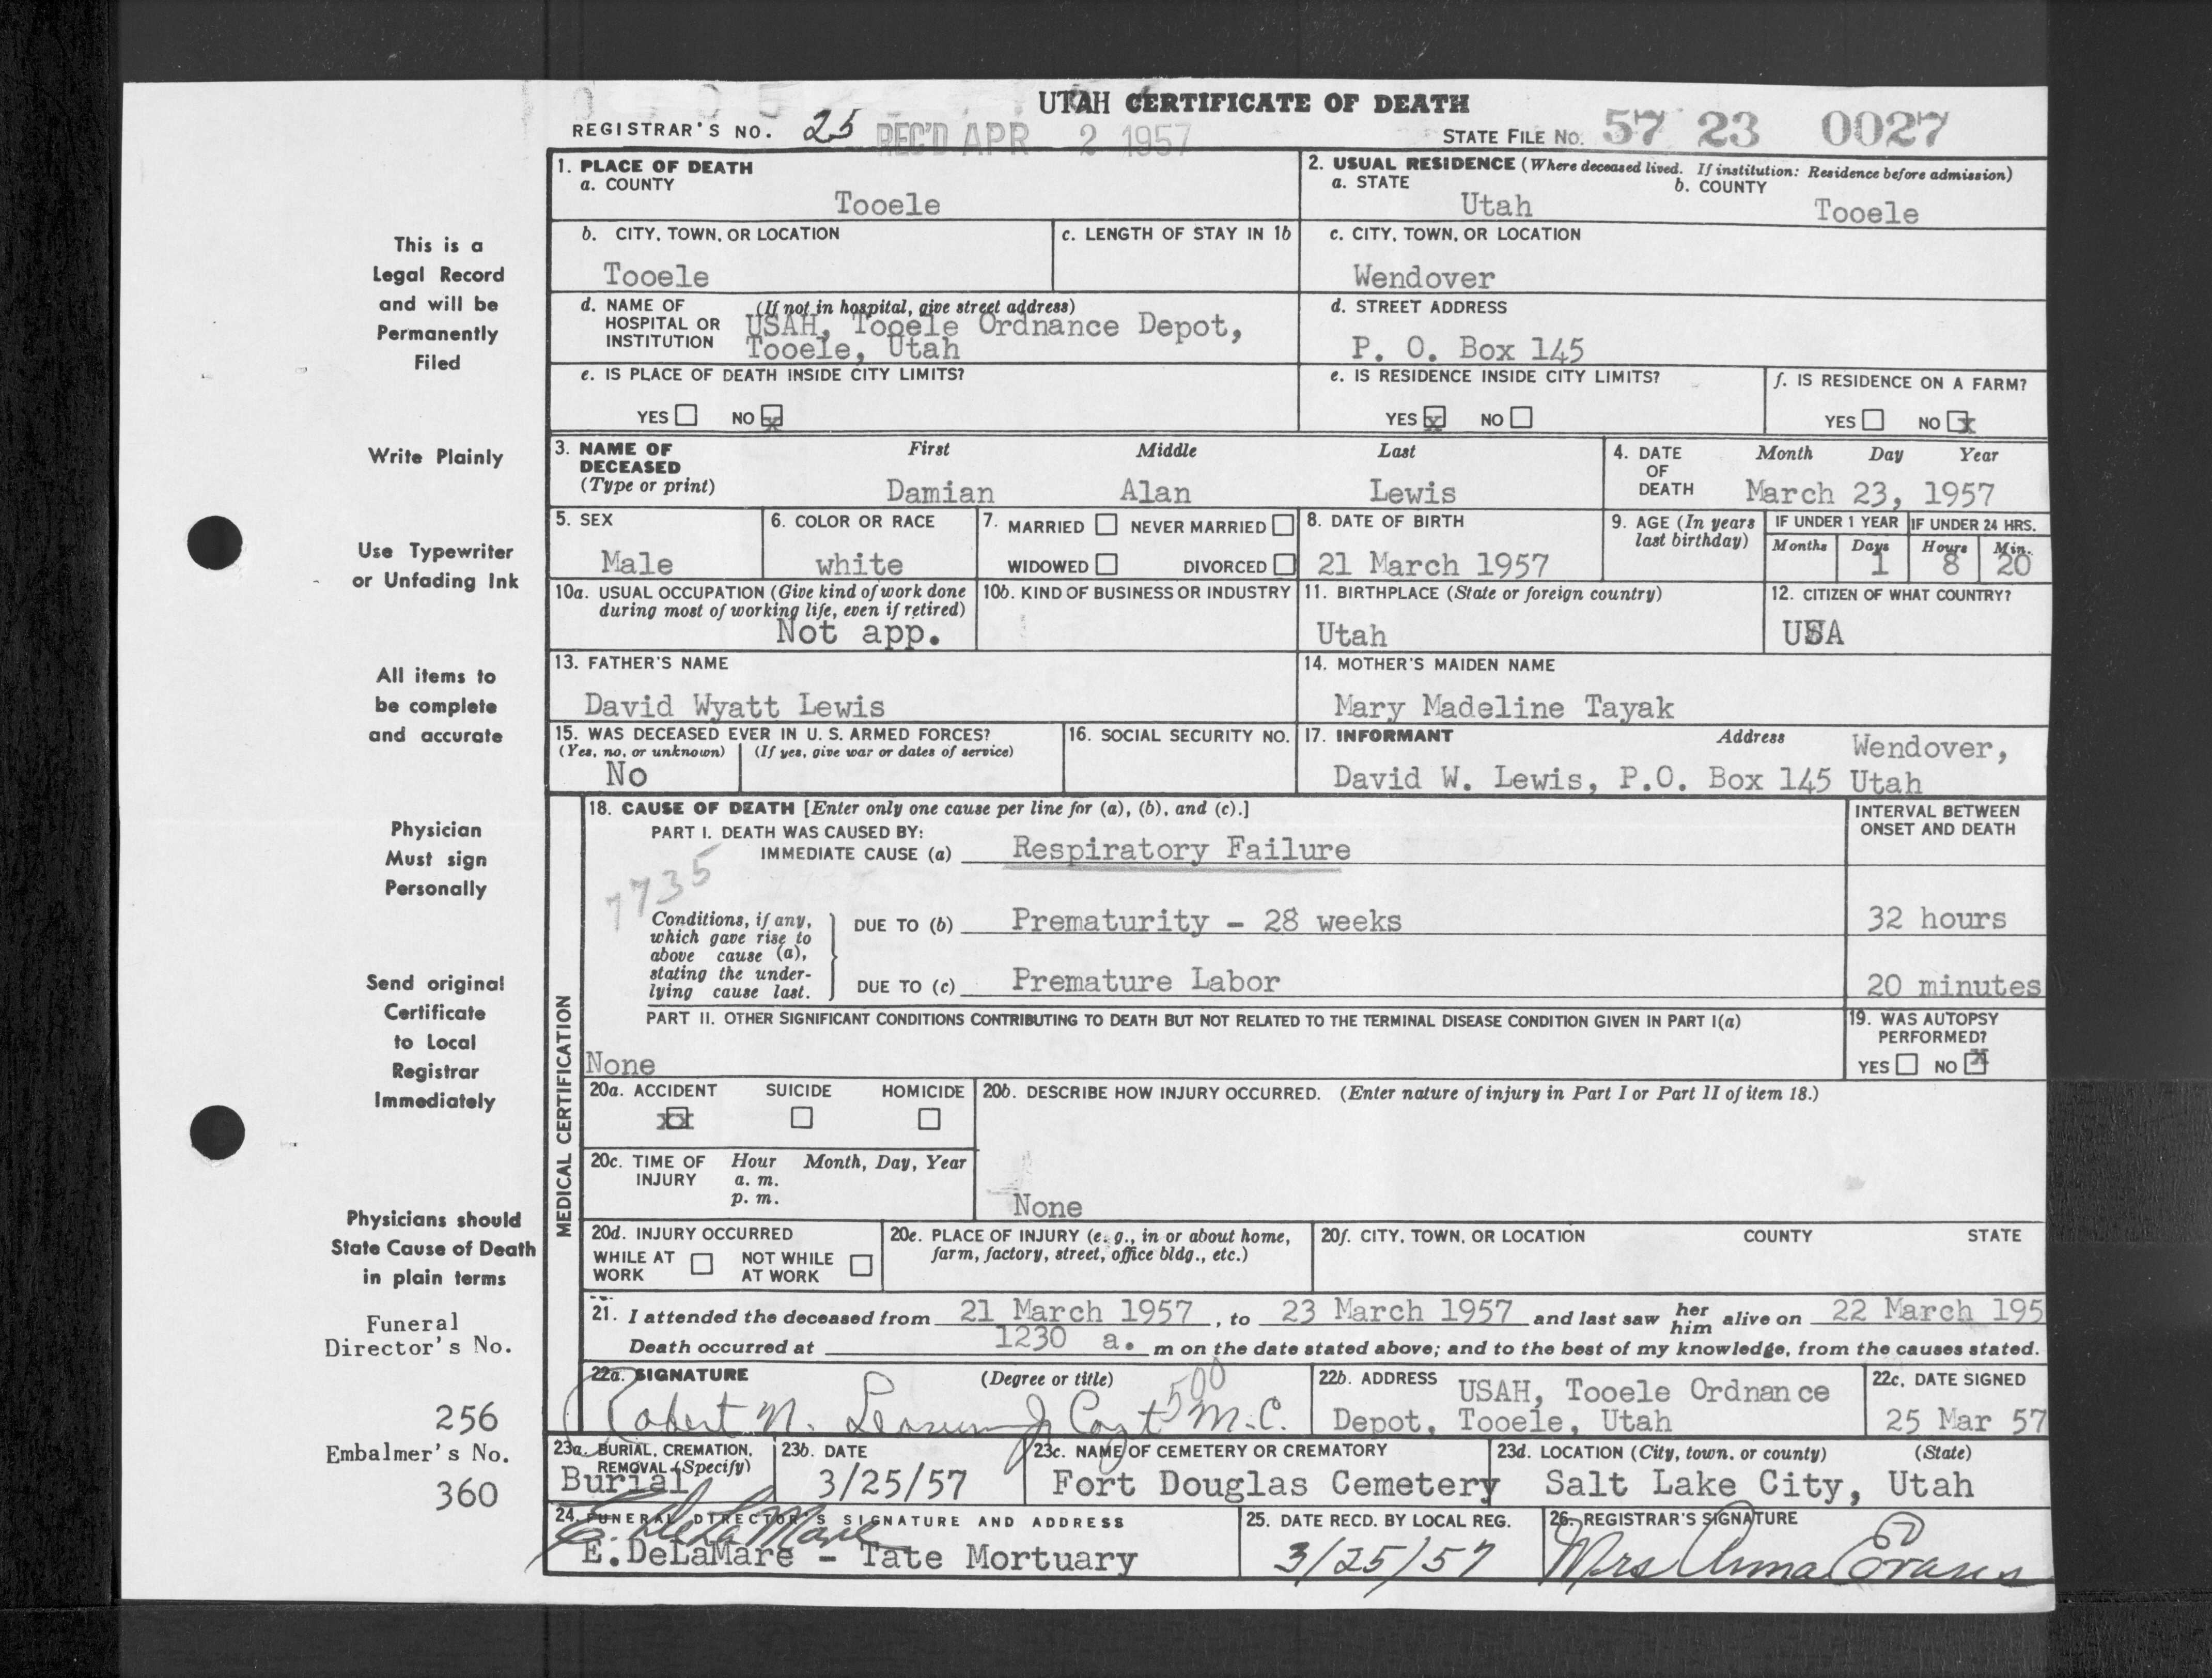 UTAH CERTIFICATE OF DEATH
REGISTRAR'S NO. 25 REC'D APR 2 1957 STATE FILE NO. 57 23 0027
1. PLACE OF DEATH
a. COUNTY
Tooele
2. USUAL RESIDENCE (Where deceased lived. If institution: Residence before admission)
a. STATE b. COUNTY
Utah Tooele
b. CITY, TOWN, OR LOCATION c. LENGTH OF STAY IN 1b
Tooele
c. CITY, TOWN, OR LOCATION
Wendover
d. NAME OF (If not in hospital, give street address)
HOSPITAL OR USAH, Tooele Ordnance Depot,
INSTITUTION Tooele, Utah
d. STREET ADDRESS
P. O. Box 145
e. IS PLACE OF DEATH INSIDE CITY LIMITS?
YES NO x
e. IS RESIDENCE INSIDE CITY LIMITS?
YES x NO
f. IS RESIDENCE ON A FARM?
YES NO x
3. NAME OF First Middle Last
DECEASED
(Type or print) Damian Alan Lewis
4. DATE Month Day Year
OF
DEATH March 23, 1957
5. SEX
Male
6. COLOR OR RACE
white
7. MARRIED NEVER MARRIED
WIDOWED DIVORCED
8. DATE OF BIRTH
21 March 1957
9. AGE (In years
last birthday)
IF UNDER 1 YEAR IF UNDER 24 HRS.
Months Days Hours Min.
1 8 20
10a. USUAL OCCUPATION (Give kind of work done
during most of working life, even if retired)
Not app.
10b. KIND OF BUSINESS OR INDUSTRY
11. BIRTHPLACE (State or foreign country)
Utah
12. CITIZEN OF WHAT COUNTRY?
USA
13. FATHER'S NAME
David Wyatt Lewis
14. MOTHER'S MAIDEN NAME
Mary Madeline Tayak
15. WAS DECEASED EVER IN U. S. ARMED FORCES?
(Yes, no, or unknown) (If yes, give war or dates of service)
No
16. SOCIAL SECURITY NO.
17. INFORMANT Address Wendover,
David W. Lewis, P.O. Box 145 Utah
MEDICAL CERTIFICATION
18. CAUSE OF DEATH [Enter only one cause per line for (a), (b), and (c).]
INTERVAL BETWEEN
ONSET AND DEATH
PART I. DEATH WAS CAUSED BY:
IMMEDIATE CAUSE (a) Respiratory Failure
7735
Conditions, if any,
which gave rise to
above cause (a),
stating the under-
lying cause last.
DUE TO (b) Prematurity - 28 weeks 32 hours
DUE TO (c) Premature Labor 20 minutes
PART II. OTHER SIGNIFICANT CONDITIONS CONTRIBUTING TO DEATH BUT NOT RELATED TO THE TERMINAL DISEASE CONDITION GIVEN IN PART I(a)
None
19. WAS AUTOPSY
PERFORMED?
YES NO x
20a. ACCIDENT SUICIDE HOMICIDE
xx
20b. DESCRIBE HOW INJURY OCCURRED. (Enter nature of injury in Part I or Part II of item 18.)
None
20c. TIME OF Hour Month, Day, Year
INJURY a. m.
p. m.
20d. INJURY OCCURRED
WHILE AT NOT WHILE
WORK AT WORK
20e. PLACE OF INJURY (e. g., in or about home,
farm, factory, street, office bldg., etc.)
20f. CITY, TOWN, OR LOCATION COUNTY STATE
21. I attended the deceased from 21 March 1957, to 23 March 1957 and last saw her him alive on 22 March 195
Death occurred at 1230 a. m on the date stated above; and to the best of my knowledge, from the causes stated.
22a. SIGNATURE (Degree or title)
Robert N. Capt M.C.
500
22b. ADDRESS USAH, Tooele Ordnance
Depot, Tooele, Utah
22c. DATE SIGNED
25 Mar 57
23a. BURIAL, CREMATION,
REMOVAL (Specify)
Burial
23b. DATE
3/25/57
23c. NAME OF CEMETERY OR CREMATORY
Fort Douglas Cemetery
23d. LOCATION (City, town, or county) (State)
Salt Lake City, Utah
24. FUNERAL DIRECTOR'S SIGNATURE AND ADDRESS
E. DeLaMare
E.DeLaMare - Tate Mortuary
25. DATE RECD. BY LOCAL REG.
3/25/57
26. REGISTRAR'S SIGNATURE
Mrs Anna Evans
This is a
Legal Record
and will be
Permanently
Filed
Write Plainly
Use Typewriter
or Unfading Ink
All items to
be complete
and accurate
Physician
Must sign
Personally
Send original
Certificate
to Local
Registrar
Immediately
Physicians should
State Cause of Death
in plain terms
Funeral
Director's No.
256
Embalmer's No.
360